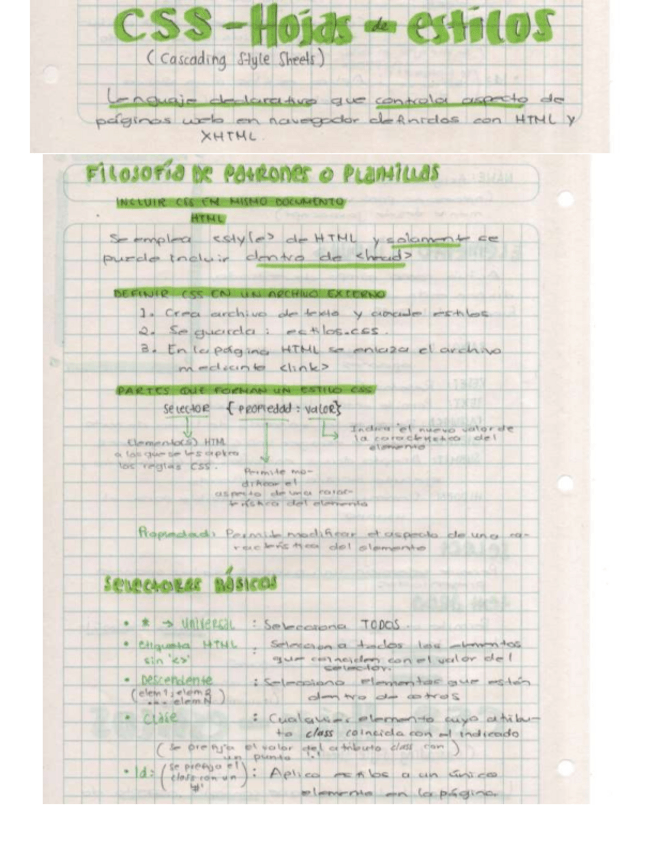 CSS - Hojas de estilos
(Cascading Style Sheets)
Lenguaje declarativo que controla aspecto de
páginas web en navegador definidos con HTML y
XHTML.
Filosofía de patrones o plantillas
INCLUIR CSS EN MISMO DOCUMENTO
HTML
Se emplea <style> de HTML y solamente se
puede incluir dentro de <head>
DEFINIR CSS EN UN ARCHIVO EXTERNO
1. Crea archivo de texto y añade estilos
2. Se guarda: estilos.css.
3. En la página HTML se enlaza el archivo
mediante <link>
PARTES QUE FORMAN UN ESTILO CSS
Selector { propiedad : valor}
Elemento(s) HTML
a los que se les aplica
las reglas CSS.
Permite mo-
dificar el
aspecto de una carac-
terística del elemento
Indica el nuevo valor de
la característica del
elemento
Propiedad: Permite modificar el aspecto de una ca-
racterística del elemento
Selectores básicos
• * → Universal : Selecciona TODOS
• Etiqueta HTML : Selecciona todos los elementos
sin '<>' que coinciden con el valor del
selector.
• Descendiente : Selecciona elementos que están
(elem1, elem2 ... elemN) dentro de otros
• Clase : Cualquier elemento cuyo atribu-
to class coincida con el indicado
(Se prefija el valor del atributo class con
un punto '.')
• Id: (Se prefija el : Aplica estilos a un único
class con un '#') elemento en la página.